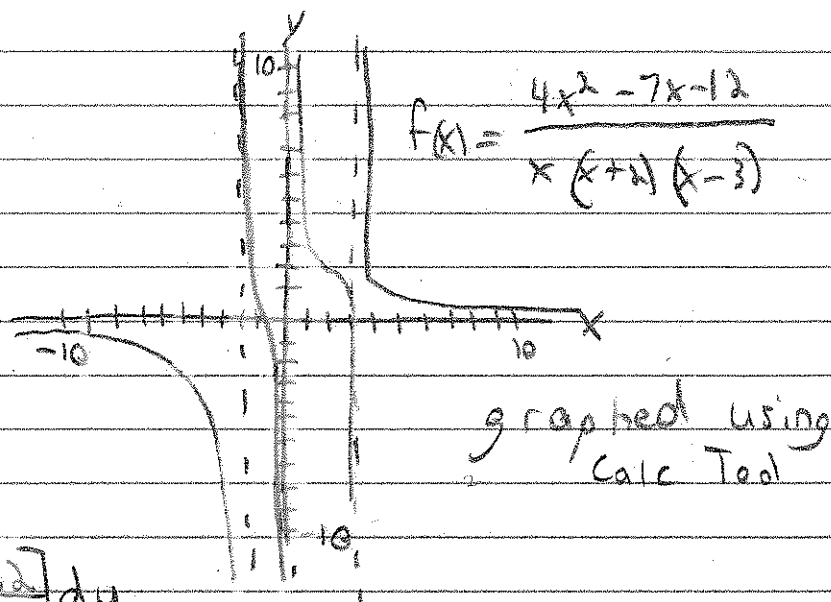 y
10
f(x) = 4x² - 7x - 12 / x (x+2) (x-3)
-10
10
X
graphed using
Calc Tool
-10
2] dy